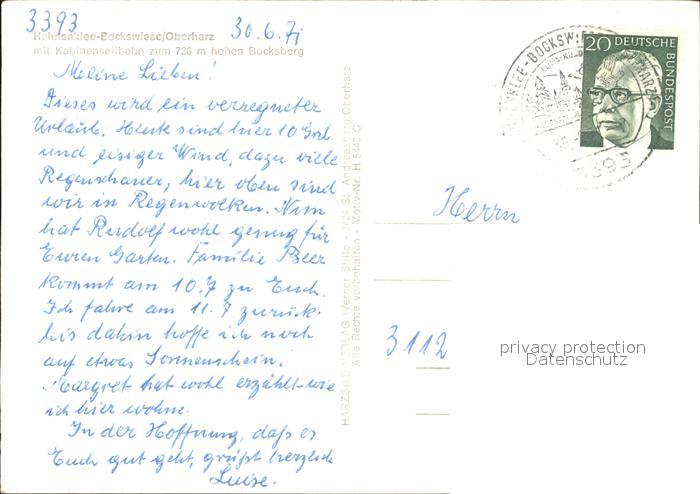 3393
30.6.71
Hahnenklee-Bockswiese/Oberharz
mit Kabinenseilbahn zum 726 m hohen Bocksberg
Meine Lieben!
Dieses wird ein verregneter
Urlaub. Heute sind hier 10 Grd.
und eisiger Wind, dazu viele
Regenschauer, hier oben sind
wir in Regenwolken. Nun
hat Rudolf wohl genug für
Euren Garten. Familie Beer
kommt am 10.7 zu Euch.
Ich fahre am 11.7 zurück.
bis dahin hoffe ich noch
auf etwas Sonnenschein.
Margret hat wohl erzählt wie
ich hier wohne.
In der Hoffnung, daß es
Euch gut geht, grüßt herzlich
Luise.
HARZBILD VERLAG Werner Stille - 3424 St. Andreasberg/Oberharz
Alle Rechte vorbehalten - Motiv-Nr. H 5440 C
HAHNENKLEE-BOCKSWIESE
3393
20 DEUTSCHE
BUNDESPOST
Herrn
3112
privacy protection
Datenschutz